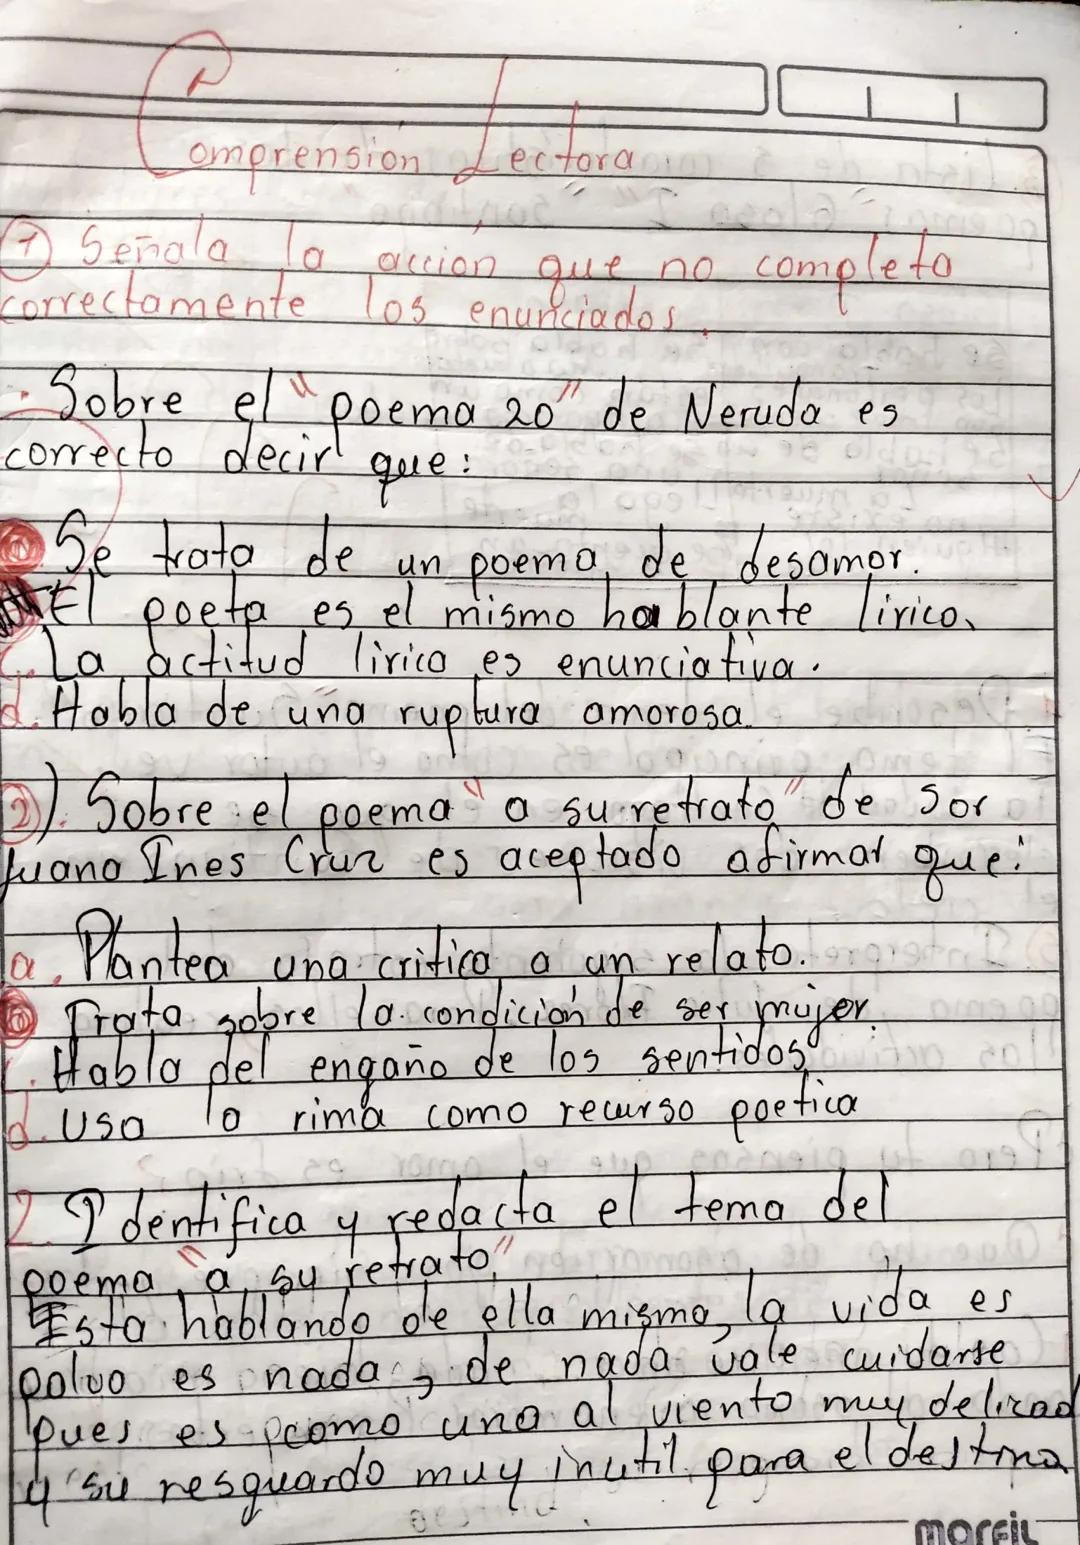 Comprension Lectora
1 Señala la accion que no completa
correctamente los enunciados.
. Sobre el "poema 20" de Neruda es
correcto decir que:
a Se trata de un poema de desamor.
El poeta es el mismo hablante lirico.
c. La actitud lirica es enunciativa.
d. Habla de una ruptura amorosa.
2). Sobre el poema "a su retrato" de Sor
Juana Ines Cruz es aceptado afirmar que:
a. Plantea una critica a un relato.
b Trata sobre la condición de ser mujer.
c. Habla del engaño de los sentidos
d. usa la rima como recurso poetica
2. Identifica y redacta el tema del
poema "a su retrato"
Esta hablando de ella misma, la vida es
polvo es nada, de nada vale cuidarse
pues es como una al viento muy delicad
y su resguardo muy inutil para el destino
morfil